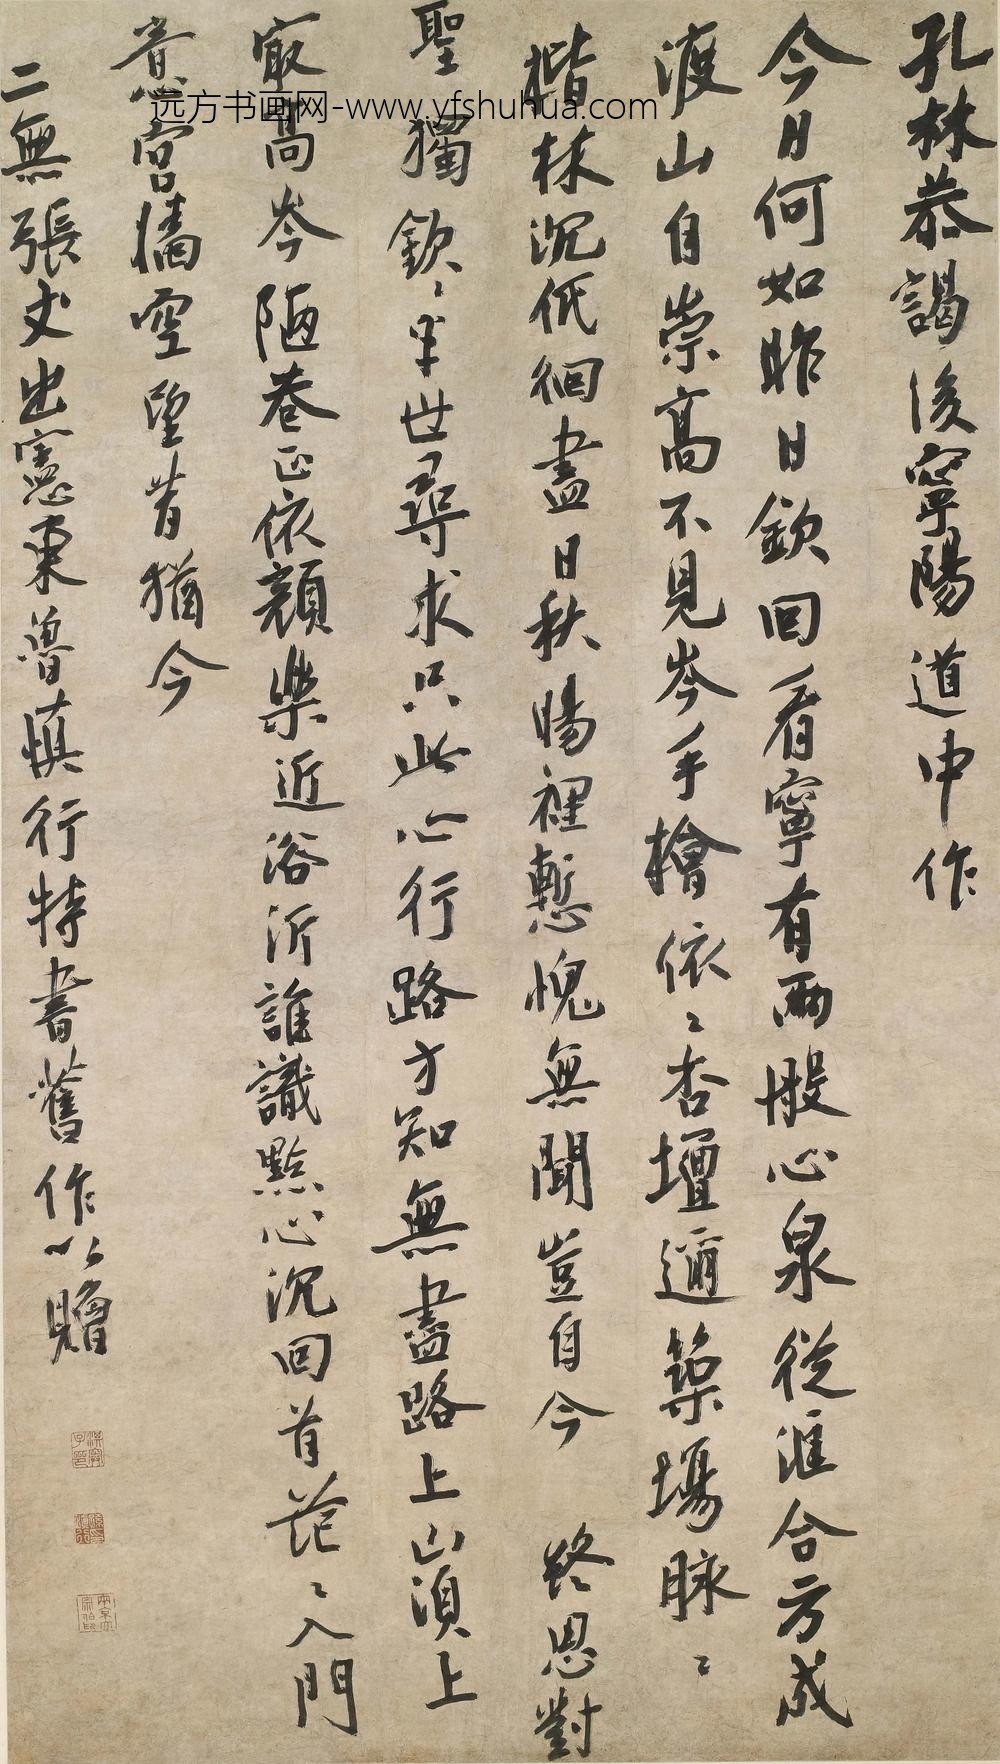 孔林恭謁後寧陽道中作
今日何如昨日欽回看寧有兩般心泉從滙合方成
渡山自崇高不見岑手手檜依〻杏壇邇築場脉〻
楷林沉低徊盡日秋暘裡慙愧無聞豈自今 終思對
聖獨欽〻半世尋求只此心行路方知無盡路上山須上
最高岑陋巷正依顏樂近浴沂誰識點心沉回首茫〻入門
意宮牆空望昔猶今
二無張丈出憲東魯慎行特書舊作以贈
远方书画网-www.yfshuhua.com